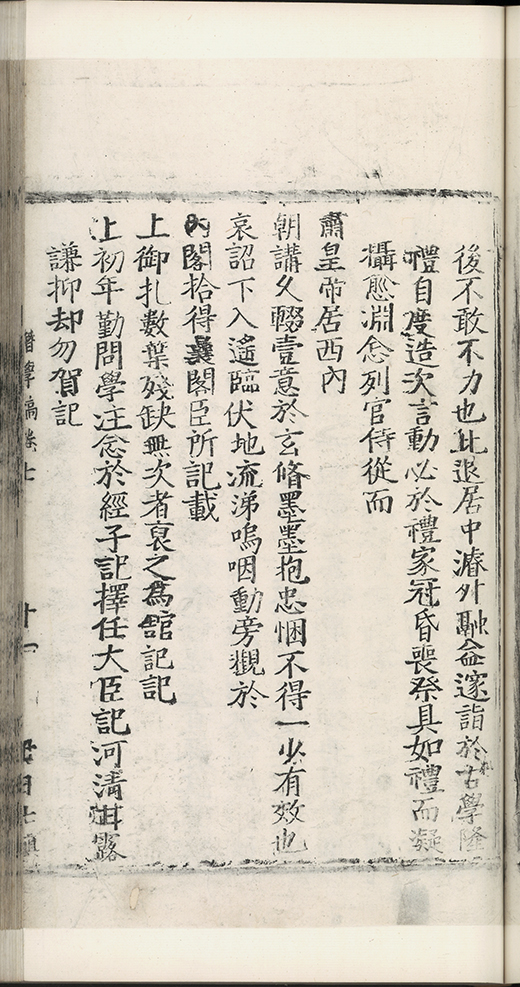 後不敢不力也比退居中濬外融益邃詣於古學隆
禮自度造次言動必於禮家冠昏喪祭具如禮而凝
攝愈淵念列官侍從而
肅皇帝居西內
朝講久輟壹意於玄脩墨墨抱忠悃不得一少有效也
哀詔下入遙臨伏地流涕嗚咽動旁觀於
內閣拾得曩閣臣所記載
上御札數葉殘缺無次者裒之為館記記
上初年勤問學注念於經子記擇任大臣記河清甘露
謙抑却勿賀記
稿卷七
十一